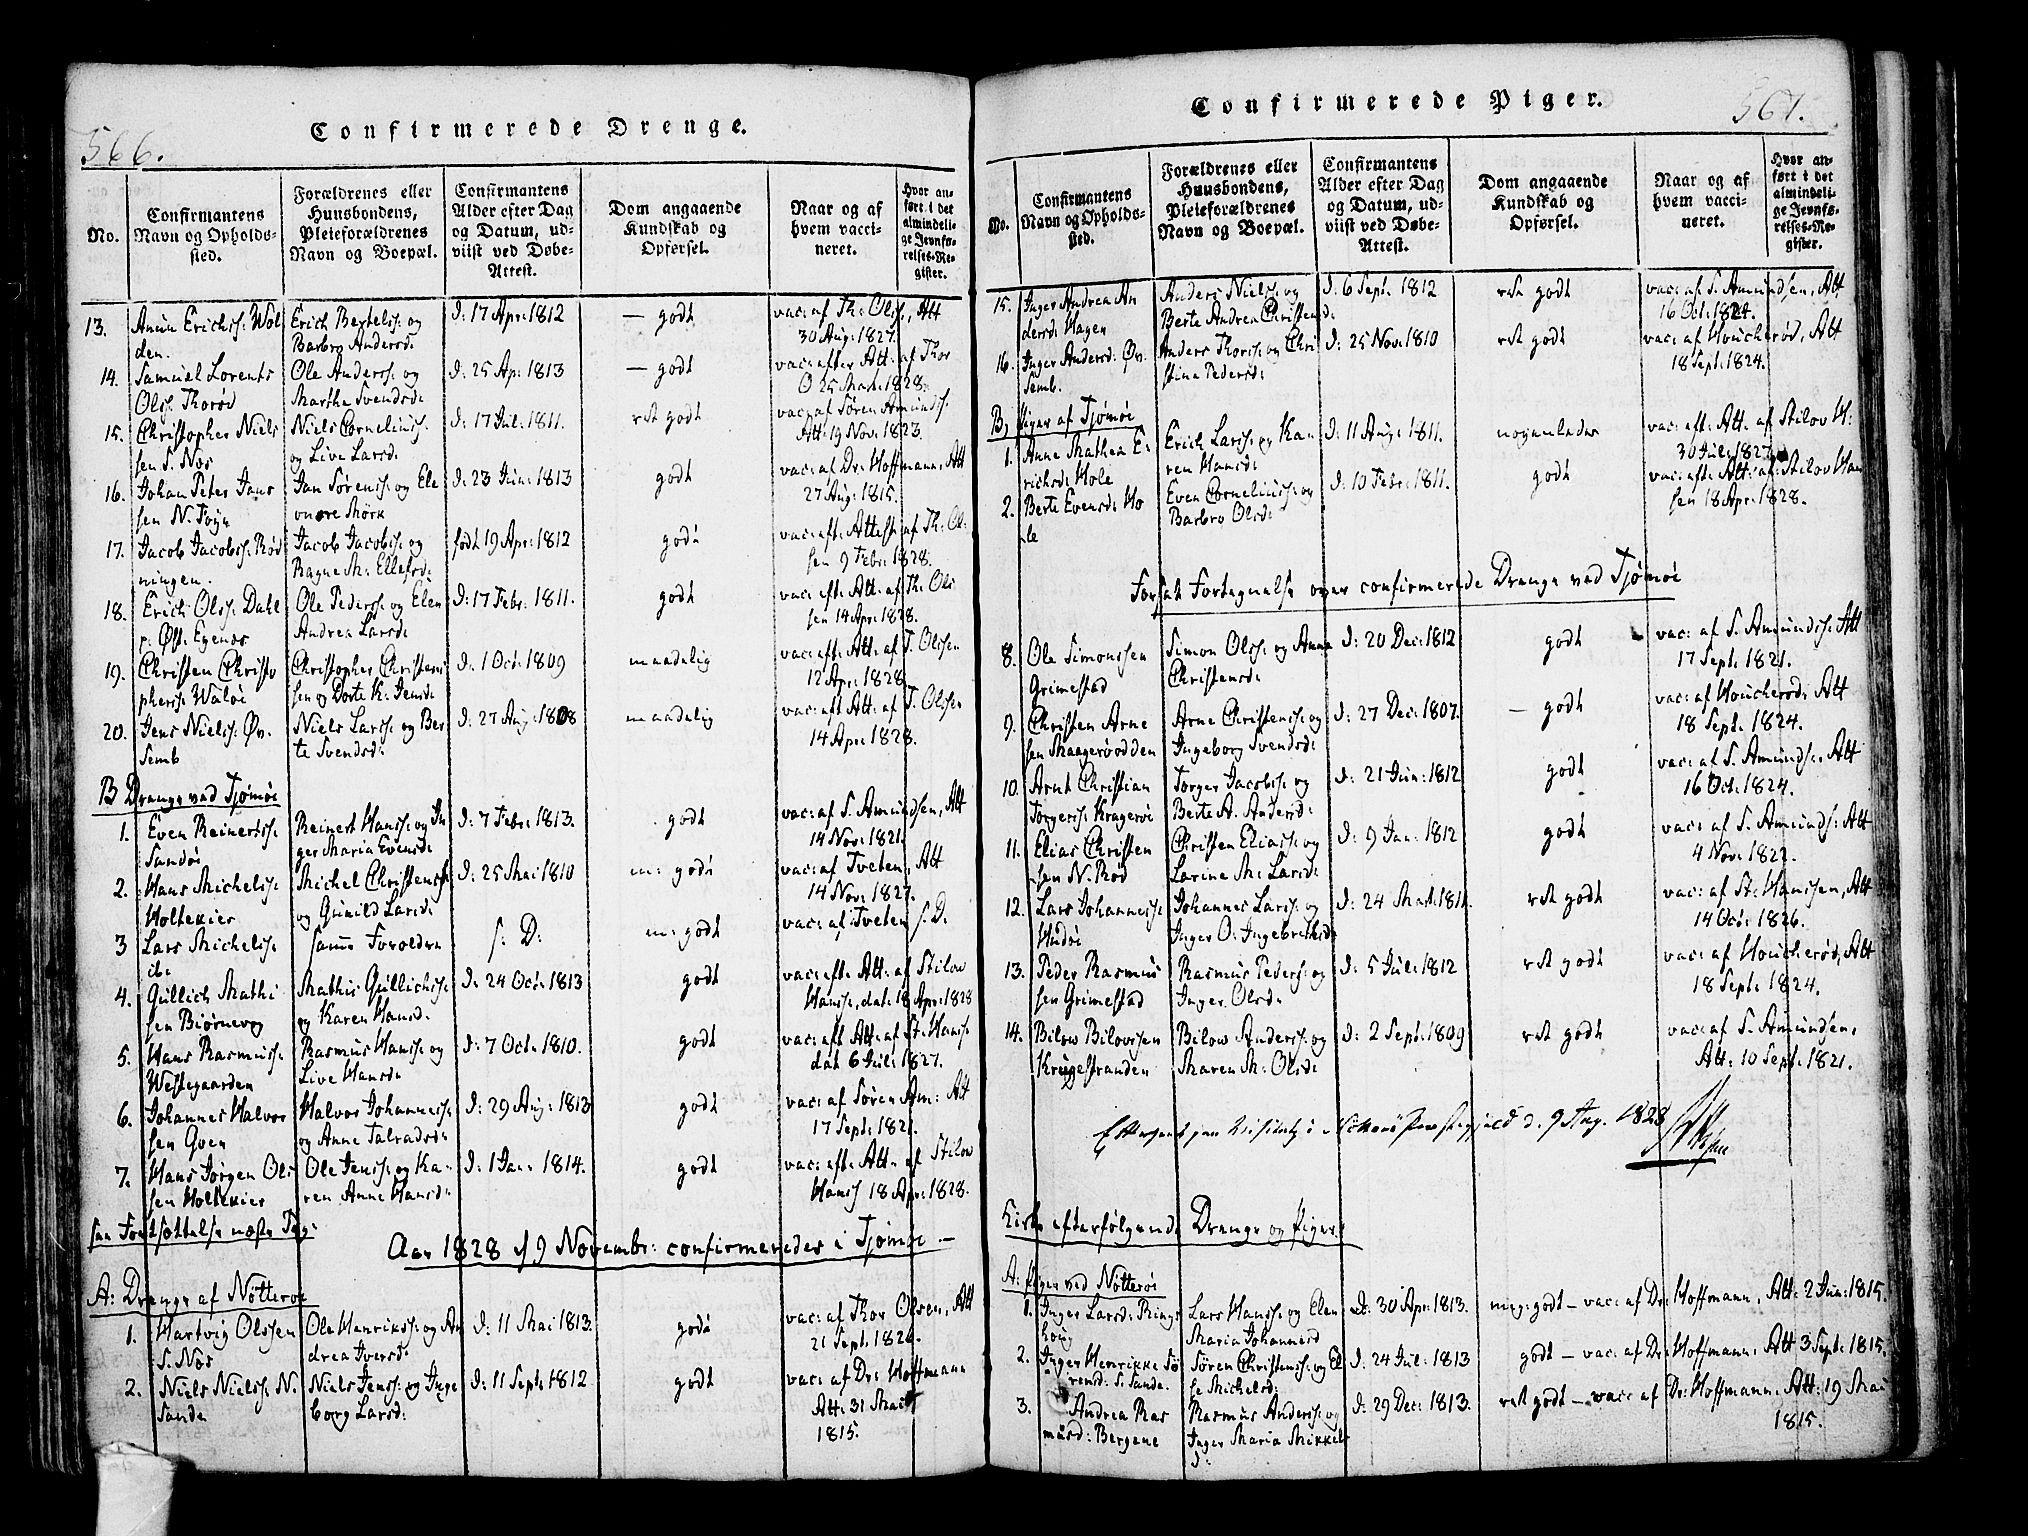 566.
Confirmerede Drenge.
No.
Confirmantens
Navn og Opholds-
sted.
Forældrenes eller
Huusbondens,
Pleieforældrenes
Navn og Boepæl.
Confirmantens
Alder efter Dag
og Datum, ud-
viist ved Døbe-
Attest.
Dom angaaende
Kundskab og
Opførsel.
Naar og af
hvem vacci-
neret.
Hvor an-
ført i det
almindeli-
ge Jevnfø-
relses-Re-
gister.
13. Erichs: Wol Erich Bertels: og d: 17 Apr: 1812 — godt vac: af Th: Ols:, Att
den. Barbro Andersd: 30 Aug: 1827.
14. Samuel Lorents Ole Anders: og d: 25 Apr: 1813 — godt vac: after Att: af Thor
Ols: Thorød Marthe Svendsd: O 25 Mart: 1828.
15. Christopher Niels Niels Cornelius: d: 17 Jul: 1811. ret godt vac: af Søren Amunds:
sen S. Nes og Live Larsd: Att: 19 Nov: 1823.
16. Johan Peter Jans Jan Sørens: og Ele d: 23 Jun: 1813 godt vac: af Dr: Hoffmann, Att
sen N. Føyn onore Mørk 27 Aug: 1815.
17. Jacob Jacobs: Rød Jacob Jacobs: og født 19 Apr: 1812 godt vac: eft: Attest af Th: Ol:
ningen. Ragne M: Ellefsd: sen 9 Febr: 1828.
18. Erich Ols: Dahl Ole Peders: og Elen d: 17 Febr: 1811. godt vac: eft: Att: af Th: Ols
p: Øst: Egenes Andrea Larsd: sen 14 Apr: 1828.
19. Christen Christo Christopher Christen d: 1 Oct: 1809 maadelig vac: eft: Att: af T. Olssen
phers: Waløe sen og Dorte K: Jensd: 12 Apr: 1828
20. Jens Niels: Øv. Niels Lars: og Ber d: 27 Aug: 1808 maadelig vac: eft: Att: af T. Olssen
Semb te Svendsd: 14 Apr: 1828.
B Drenge ved Tjømøe
1. Even Reinerts: Reinert Hans: og In d: 7 Febr: 1813. godt vac: af S. Amundsen, Att
Sandøe ger Maria Evensd: 14 Nov: 1821.
2. Hans Michels: Michel Christens: d: 25 Mai 1810 m: godt vac: af Tveten, Att
Holtekier og Gunild Larsd: 14 Nov: 1827.
3 Lars Michels: samme Foreldre s: D: m: godt vac: af Tveten s: D.
ib:
4. Gullich Mathi Mathis Gullichs: d: 24 Oct: 1813 godt vac: eft: Att: af Stilow
sen Biørnevog og Karen Hansd: Hans:, dat: 18 Apr: 1828
5. Hans Rasmus: Rasmus Hans: og d: 7 Oct: 1810. godt vac: eft: Att: af St: Hans:
Westegaarden Live Hansd: dat 6 Jul: 1827.
6. Johannes Halvor Halvor Johannes: d: 29 Aug: 1813 godt vac: af Søren Am: Att
sen Goen og Anne Talradsd: 17 Sept: 1821.
7. Hans Jørgen Ols Ole Jens: og Ka- d: 1 Jan: 1814. godt vac: eft: Att: af Stilow
sen Holtekier ren Anne Hansd: Hans: 18 Apr: 1828.
see Fortsættelse næste Pag:
Aar 1828 d 9 November: confirmeredes i Tjømøe —
A: Drenge af Nötterøe
1. Hartvig Olssen Ole Henriks: og An d: 11 Mai 1813. godt vac: af Thor Olsen, Att
S. Nes drea Iversd: 21 Sept: 1826.
2. Niels Niels: N. Niels Jens: og Inge d: 11 Sept: 1812 godt vac: af Dr: Hoffmann
Sande borg Larsd: Att: 31 Mai
1815.
567.
Confirmerede Piger.
No.
Confirmantens
Navn og Opholds-
sted.
Forældrenes eller
Huusbondens,
Pleieforældrenes
Navn og Boepæl.
Confirmantens
Alder efter Dag
og Datum, ud-
viist ved Døbe-
Attest.
Dom angaaende
Kundskab og
Opførsel.
Naar og af
hvem vacci-
neret.
Hvor an-
ført i det
almindeli-
ge Jevnfø-
relses-Re-
gister.
15. Inger Andrea An Anders Niels: og d: 6 Sept: 1812 ret godt vac: af S. Amundsen, Att
dersd: Hagen Berte Andrea Christensd: 16 Oct: 1824.
16. Inger Andersd: Øv. Anders Thors: og Chri d: 25 Nov: 1810 ret godt vac: af Houcherød, Att
Semb. stina Pedersd: 18 Sept: 1824.
B, Piger af Tjømøe
1. Anne Mathea E- Erich Lars: og Ka d: 11 Aug: 1811. nogenledes vac: eft: Att: af Stilov H:
richsd: Hole ren Hansd: 30 Jul: 1827
2. Berte Evensd: Ho Even Cornelius: og d: 10 Febr: 1811. godt vac: eft: Att: af Stilov Han
le Barbro Olsd: sen 18 Apr: 1828.
Forsat Fortegnelse over confirmerede Drenge ved Tjømøe
8. Ole Simonssen Simon Ols: og Anne d: 20 Dec: 1812 godt vac: af S. Amunds: Att
Grimestad Christensd: 17 Sept: 1821.
9. Christen Arne Arne Christens: og d: 27 Dec: 1807. — godt vac: af Houcherød, Att
sen Maagerøodden Ingeborg Svendsd: 18 Sept: 1824.
10. Arnt Christian Torger Jacobs: og d: 21 Jun: 1812 godt vac: af S. Amunds:, Att
Torgers: Kragerøe Berte A. Andersd: 16 Oct: 1824.
11. Elias Christen Christen Elias: og d: 9 Jan: 1812 godt vac: af S. Amunds: Att
sen N. Rød Larine M: Larsd: 4 Nov: 1822.
12. Lars Johannes: Johannes Lars: og d: 24 Mart: 1811. ret godt vac: af St: Hanssen, Att
Hudøe Inger O: Ingebretsd: 14 Oct: 1826.
13. Peder Rasmus Rasmus Peders: og d: 5 Jul: 1812 ret godt vac: af Houcherød, Att
sen Grimestad Inger Olsd: 18 Sept: 1824.
14. Bilow Bilovsen Bilow Anders: og d: 2 Sept: 1809 ret godt vac: af S. Amundsen,
Krugestranden Maren M: Olsd: Att: 10 Sept: 1821.
Efterseet paa Visitatz i Nøtterø Præstegjeld d. 9 Aug. 1828
Liste efterfølgende Drenge og Piger
A: Piger ved Nötterøe
1. Inger Larsd: Rings Lars Hans: og Elen d: 30 Apr: 1813. meg: godt — vac: af Dr: Hoffmann, Att: 2 Jun: 1815.
houg Maria Johannesd
2. Inger Henrikke Sø Søren Christens: og El d: 24 Jul: 1813 godt — vac: af Dr: Hoffmann, Att 3 Sept: 1815.
rensd: S. Sande. se Michelsd:
3. Andrea Ras Rasmus Anders: og d: 29 Dec: 1813. ret godt — vac: af Dr: Hoffmann, Att: 19 Mai
musd: Bergene Inger Maria Mikkels 1815.
d: